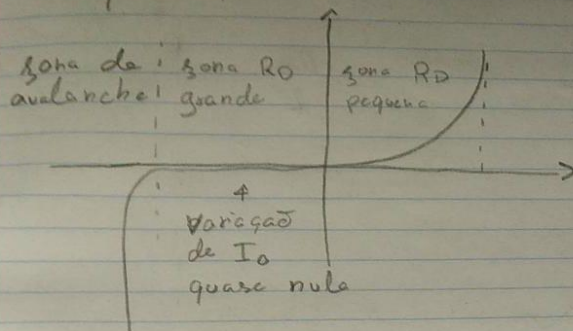 zona de
avalanche
zona RD
grande
zona RD
pequena
variação
de ID
quase nula